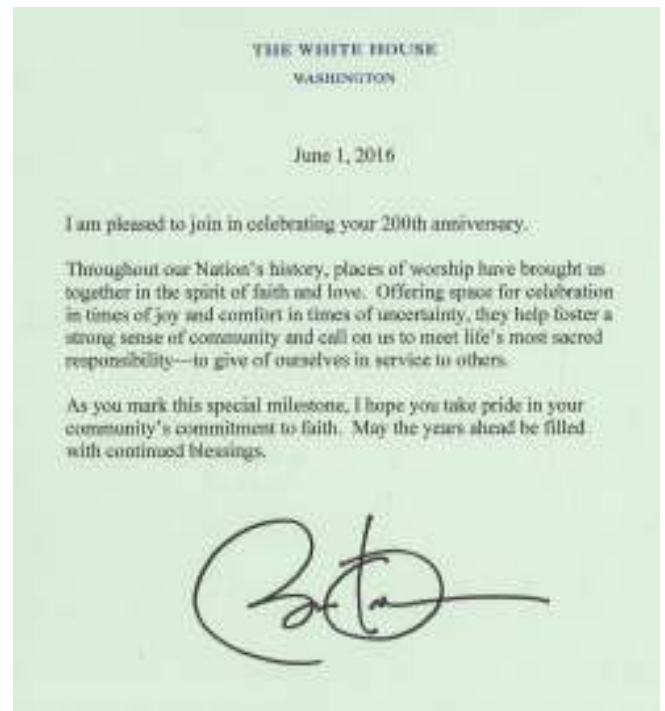 THE WHITE HOUSE
WASHINGTON
June 1, 2016
I am pleased to join in celebrating your 200th anniversary.
Throughout our Nation's history, places of worship have brought us
together in the spirit of faith and love. Offering space for celebration
in times of joy and comfort in times of uncertainty, they help foster a
strong sense of community and call on us to meet life's most sacred
responsibility—to give of ourselves in service to others.
As you mark this special milestone, I hope you take pride in your
community's commitment to faith. May the years ahead be filled
with continued blessings.